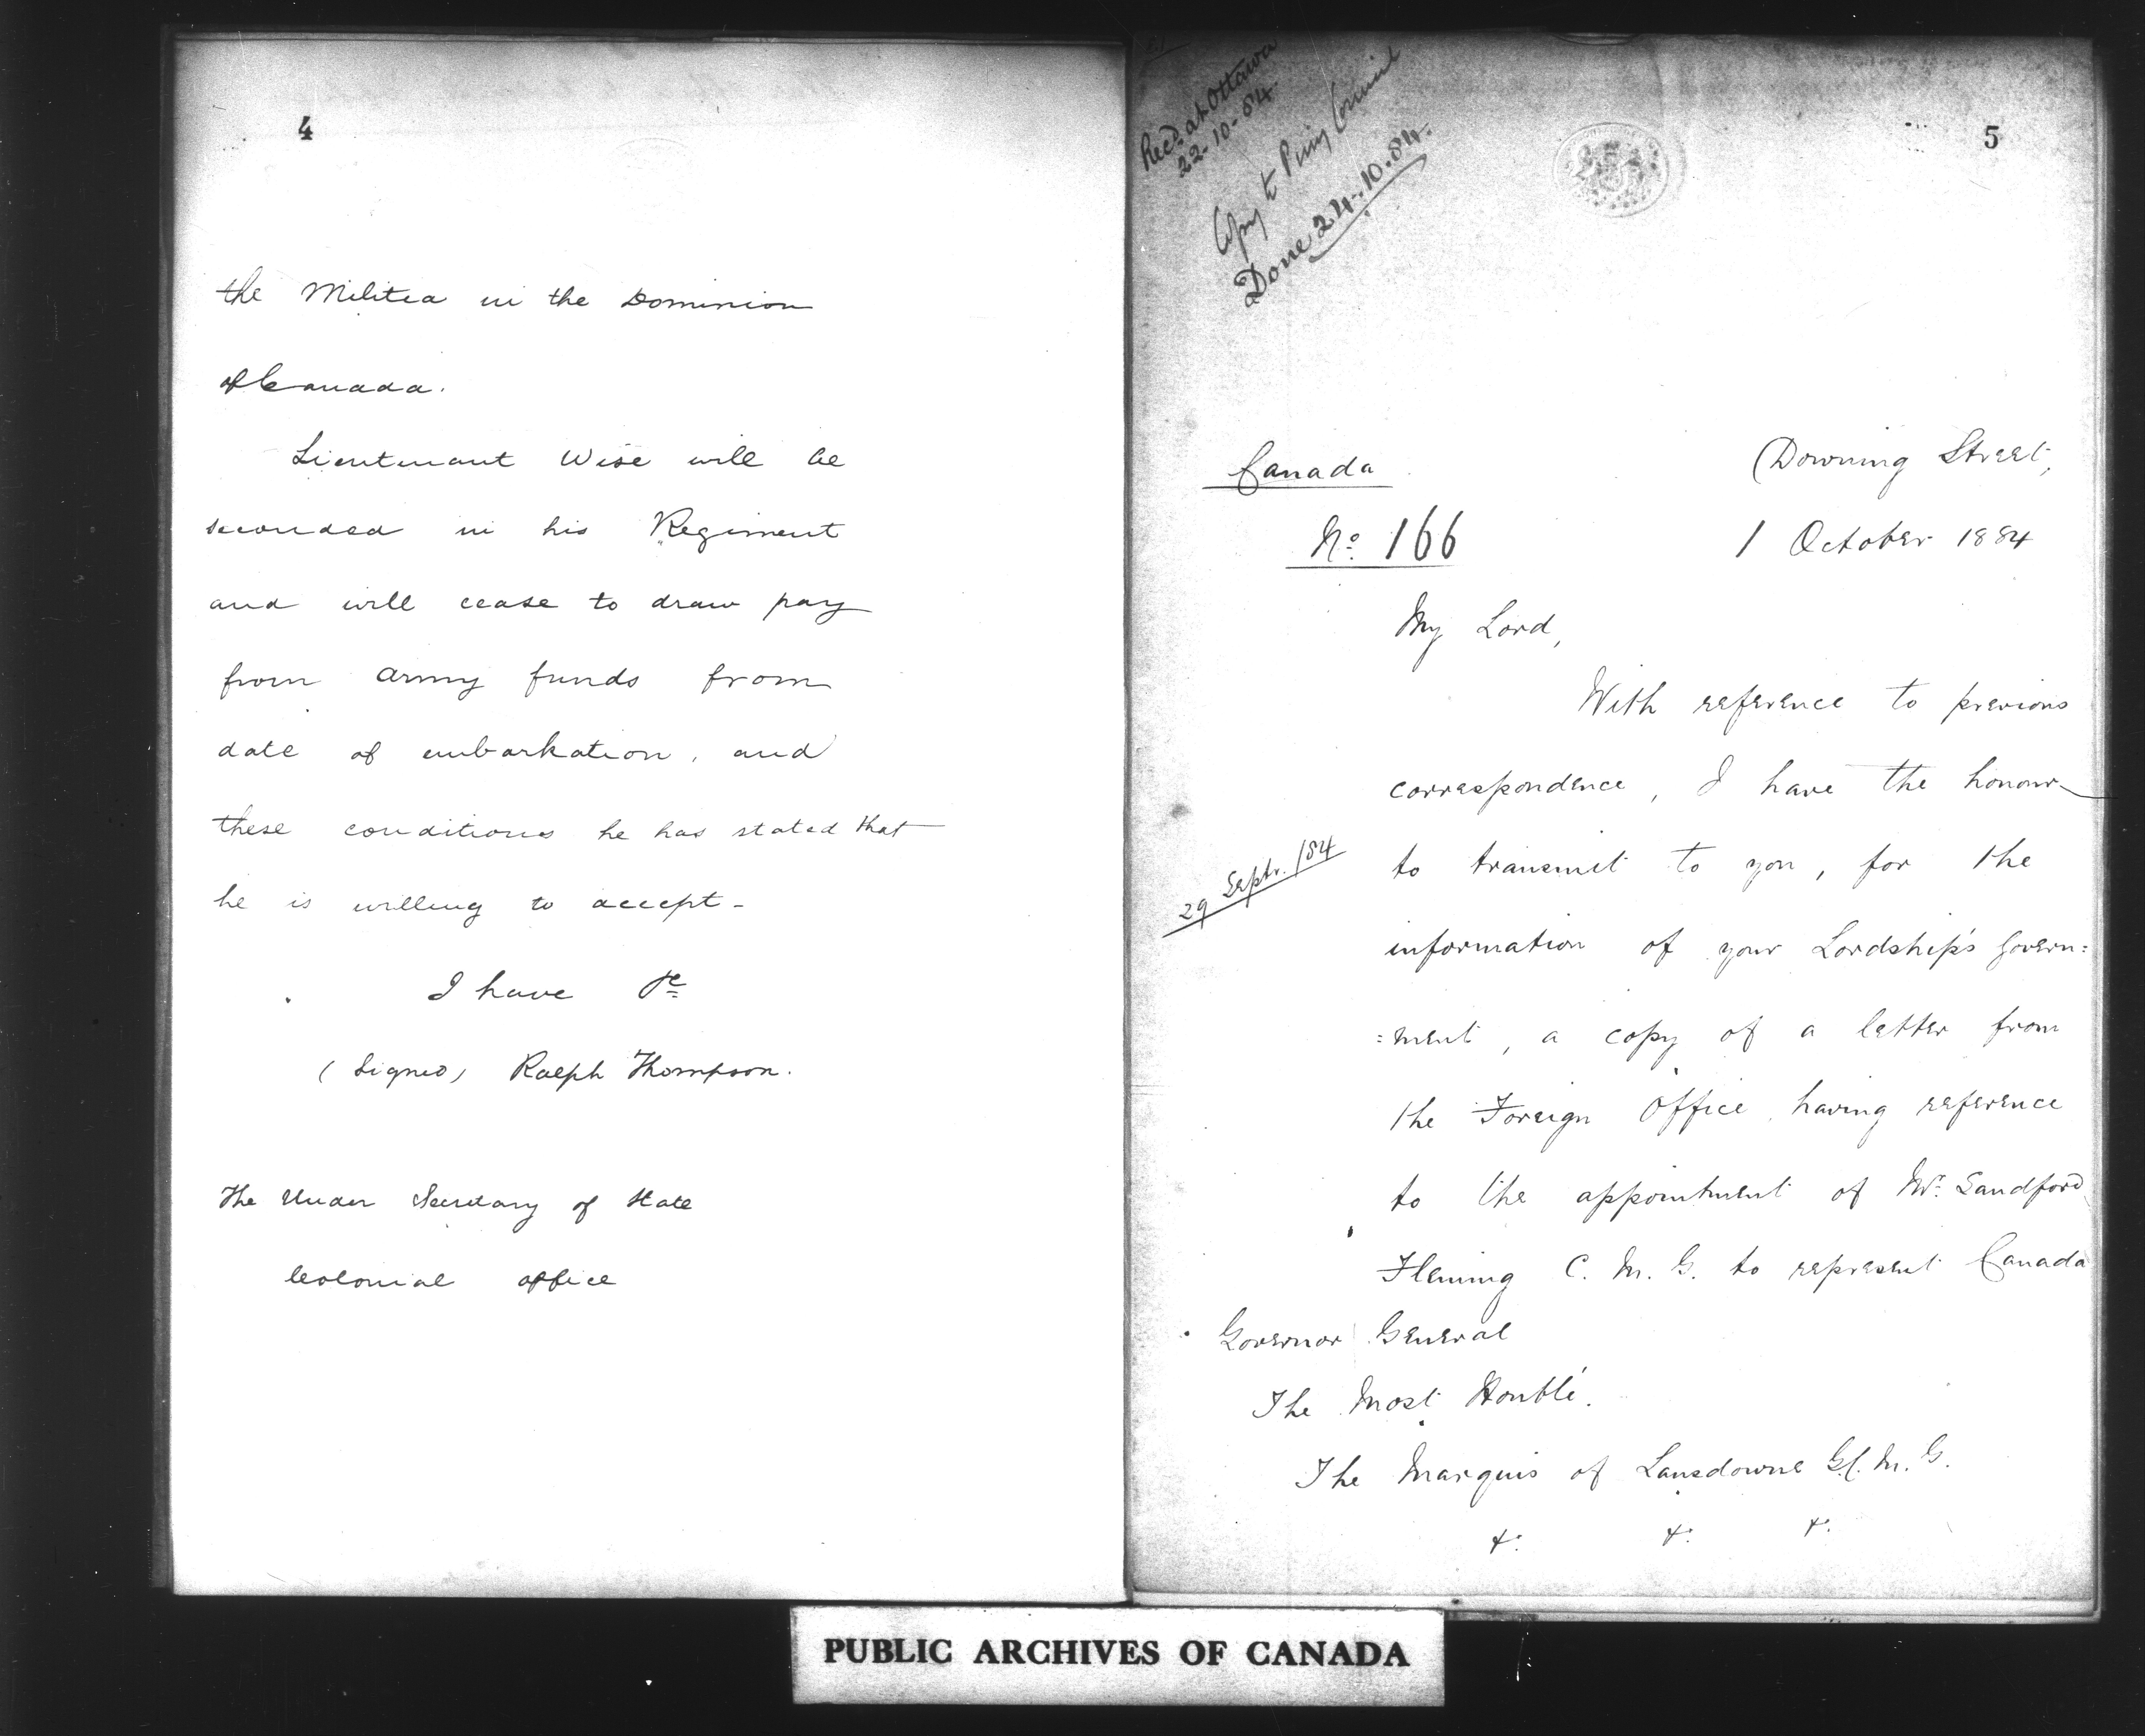 4
the Militia in the Dominion
of Canada.
Lieutenant Wise will be
seconded in his Regiment
and will cease to draw pay
from Army funds from
date of embarkation, and
these conditions he has stated that
he is willing to accept -
I have &c
(Signed) Ralph Thompson.
The Under Secretary of State
Colonial Office
5
Recd. at Ottawa
22-10-84
Copy to Privy Council
Done 24.10.84.
Canada
Downing Street,
No. 166
1 October 1884
My Lord,
With reference to previous
correspondence, I have the honour
29 Septr. /84
to transmit to you, for the
information of your Lordship's Govern:
:ment, a copy of a letter from
the Foreign Office having reference
to the appointment of Mr. Sandford
Fleming C.M.G. to represent Canada
Governor General
The Most Honble.
The Marquis of Lansdowne G.C.M.G.
&. &. &.
PUBLIC ARCHIVES OF CANADA